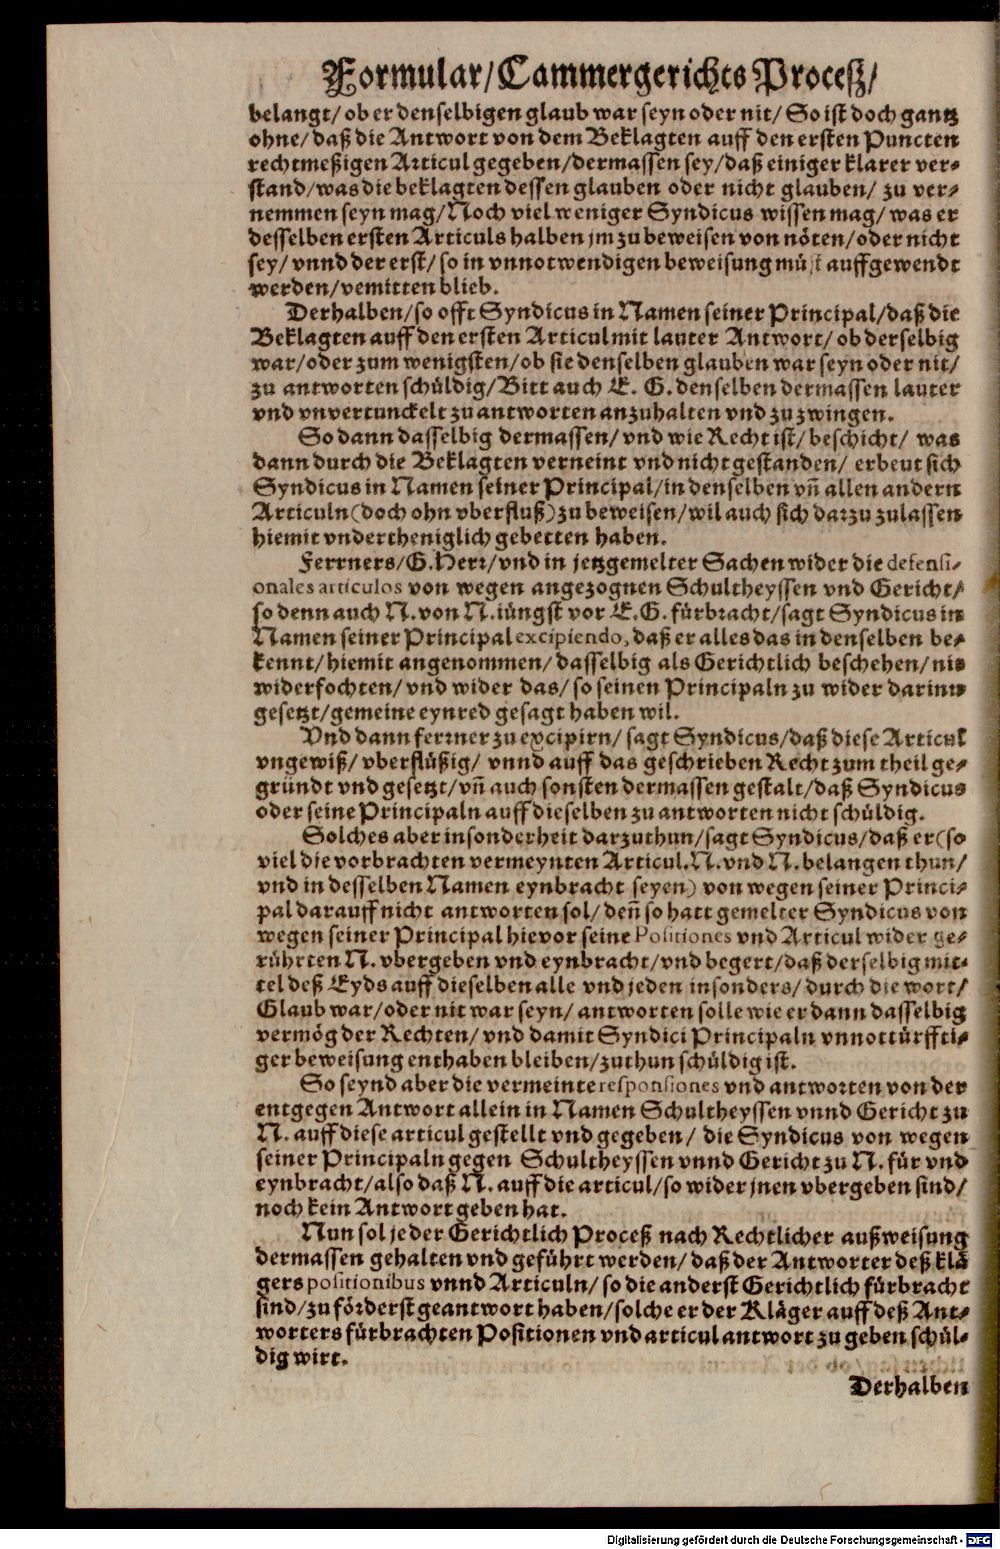 Formular/Cammergerichts Proceß/
belangt/ ob er denselbigen glaub war seyn oder nit/ So ist doch gantz
ohne/ daß die Antwort von dem Beklagten auff den ersten Puncten
rechtmeßigen Articul gegeben/dermassen sey/daß einiger klarer ver-
stand/was die beklagten dessen glauben oder nicht glauben/ zu ver-
nemmen seyn mag/Noch viel weniger Syndicus wissen mag/ was er
desselben ersten Articuls halben jm zu beweisen von nöten/oder nicht
sey/ vnnd der erst/ so in vnnotwendigen beweisung müst auffgewendt
werden/vemitten blieb.
Derhalben/so offt Syndicus in Namen seiner Principal/daß die
Beklagten auff den ersten Articul mit lauter Antwort/ ob derselbig
war/oder zum wenigsten/ob sie denselben glauben war seyn oder nit/
zu antworten schüldig/Bitt auch E. G. denselben dermassen lauter
vnd vnvertunckelt zu antworten anzuhalten vnd zu zwingen.
So dann dasselbig dermassen/ vnd wie Recht ist/ beschicht/ was
dann durch die Beklagten verneint vnd nicht gestanden/ erbeut sich
Syndicus in Namen seiner Principal/in denselben vñ allen andern
Articuln(doch ohn vberfluß)zu beweisen/wil auch sich darzu zulassen
hiemit vndertheniglich gebetten haben.
Ferrners/G.Herr/vnd in jetzgemelter Sachen wider die defensi-
onales articulos von wegen angezognen Schultheyssen vnd Gericht/
so denn auch N. von N. iüngst vor E.G. fürbracht/sagt Syndicus in
Namen seiner Principal excipiendo, daß er alles das in denselben be-
kennt/hiemit angenommen/ dasselbig als Gerichtlich beschehen/nie
widerfochten/ vnd wider das/ so seinen Principaln zu wider darinn
gesetzt/gemeine eynred gesagt haben wil.
Vnd dann ferrner zu excipirn/ sagt Syndicus/daß diese Articul
vngewiß/ vberflüßig/ vnnd auff das geschrieben Recht zum theil ge-
gründt vnd gesetzt/vñ auch sonsten dermassen gestalt/daß Syndicus
oder seine Principaln auff dieselben zu antworten nicht schüldig.
Solches aber insonderheit darzuthun/sagt Syndicus/daß er(so
viel die vorbrachten vermeynten Articul.N. vnd N. belangen thun/
vnd in desselben Namen eynbracht seyen) von wegen seiner Princi-
pal darauff nicht antworten sol/deñ so hatt gemelter Syndicus von
wegen seiner Principal hievor seine Positiones vnd Articul wider ge-
rührten N. vbergeben vnd eynbracht/vnd begert/daß derselbig mit-
tel deß Eyds auff dieselben alle vnd jeden insonders/ durch die wort/
Glaub war/oder nit war seyn/ antworten solle wie er dann dasselbig
vermög der Rechten/ vnd damit Syndici Principaln vnnottürffti-
ger beweisung enthaben bleiben/zuthun schüldig ist.
So seynd aber die vermeinte responsiones vnd antworten von der
entgegen Antwort allein in Namen Schultheyssen vnnd Gericht zu
N. auff diese articul gestellt vnd gegeben/ die Syndicus von wegen
seiner Principaln gegen Schultheyssen vnnd Gericht zu N. für vnd
eynbracht/also daß N. auff die articul/so wider jnen vbergeben sind/
noch kein Antwort geben hat.
Nun sol jeder Gerichtlich Proceß nach Rechtlicher außweisung
dermassen gehalten vnd geführt werden/ daß der Antworter deß klä
gers positionibus vnnd Articuln/ so die anderst Gerichtlich fürbracht
sind/zu förderst geantwort haben/solche er der Kläger auff deß Ant-
worters fürbrachten Positionen vnd articul antwort zu geben schül-
dig wirt.
Derhalben
Digitalisierung gefördert durch die Deutsche Forschungsgemeinschaft - DFG